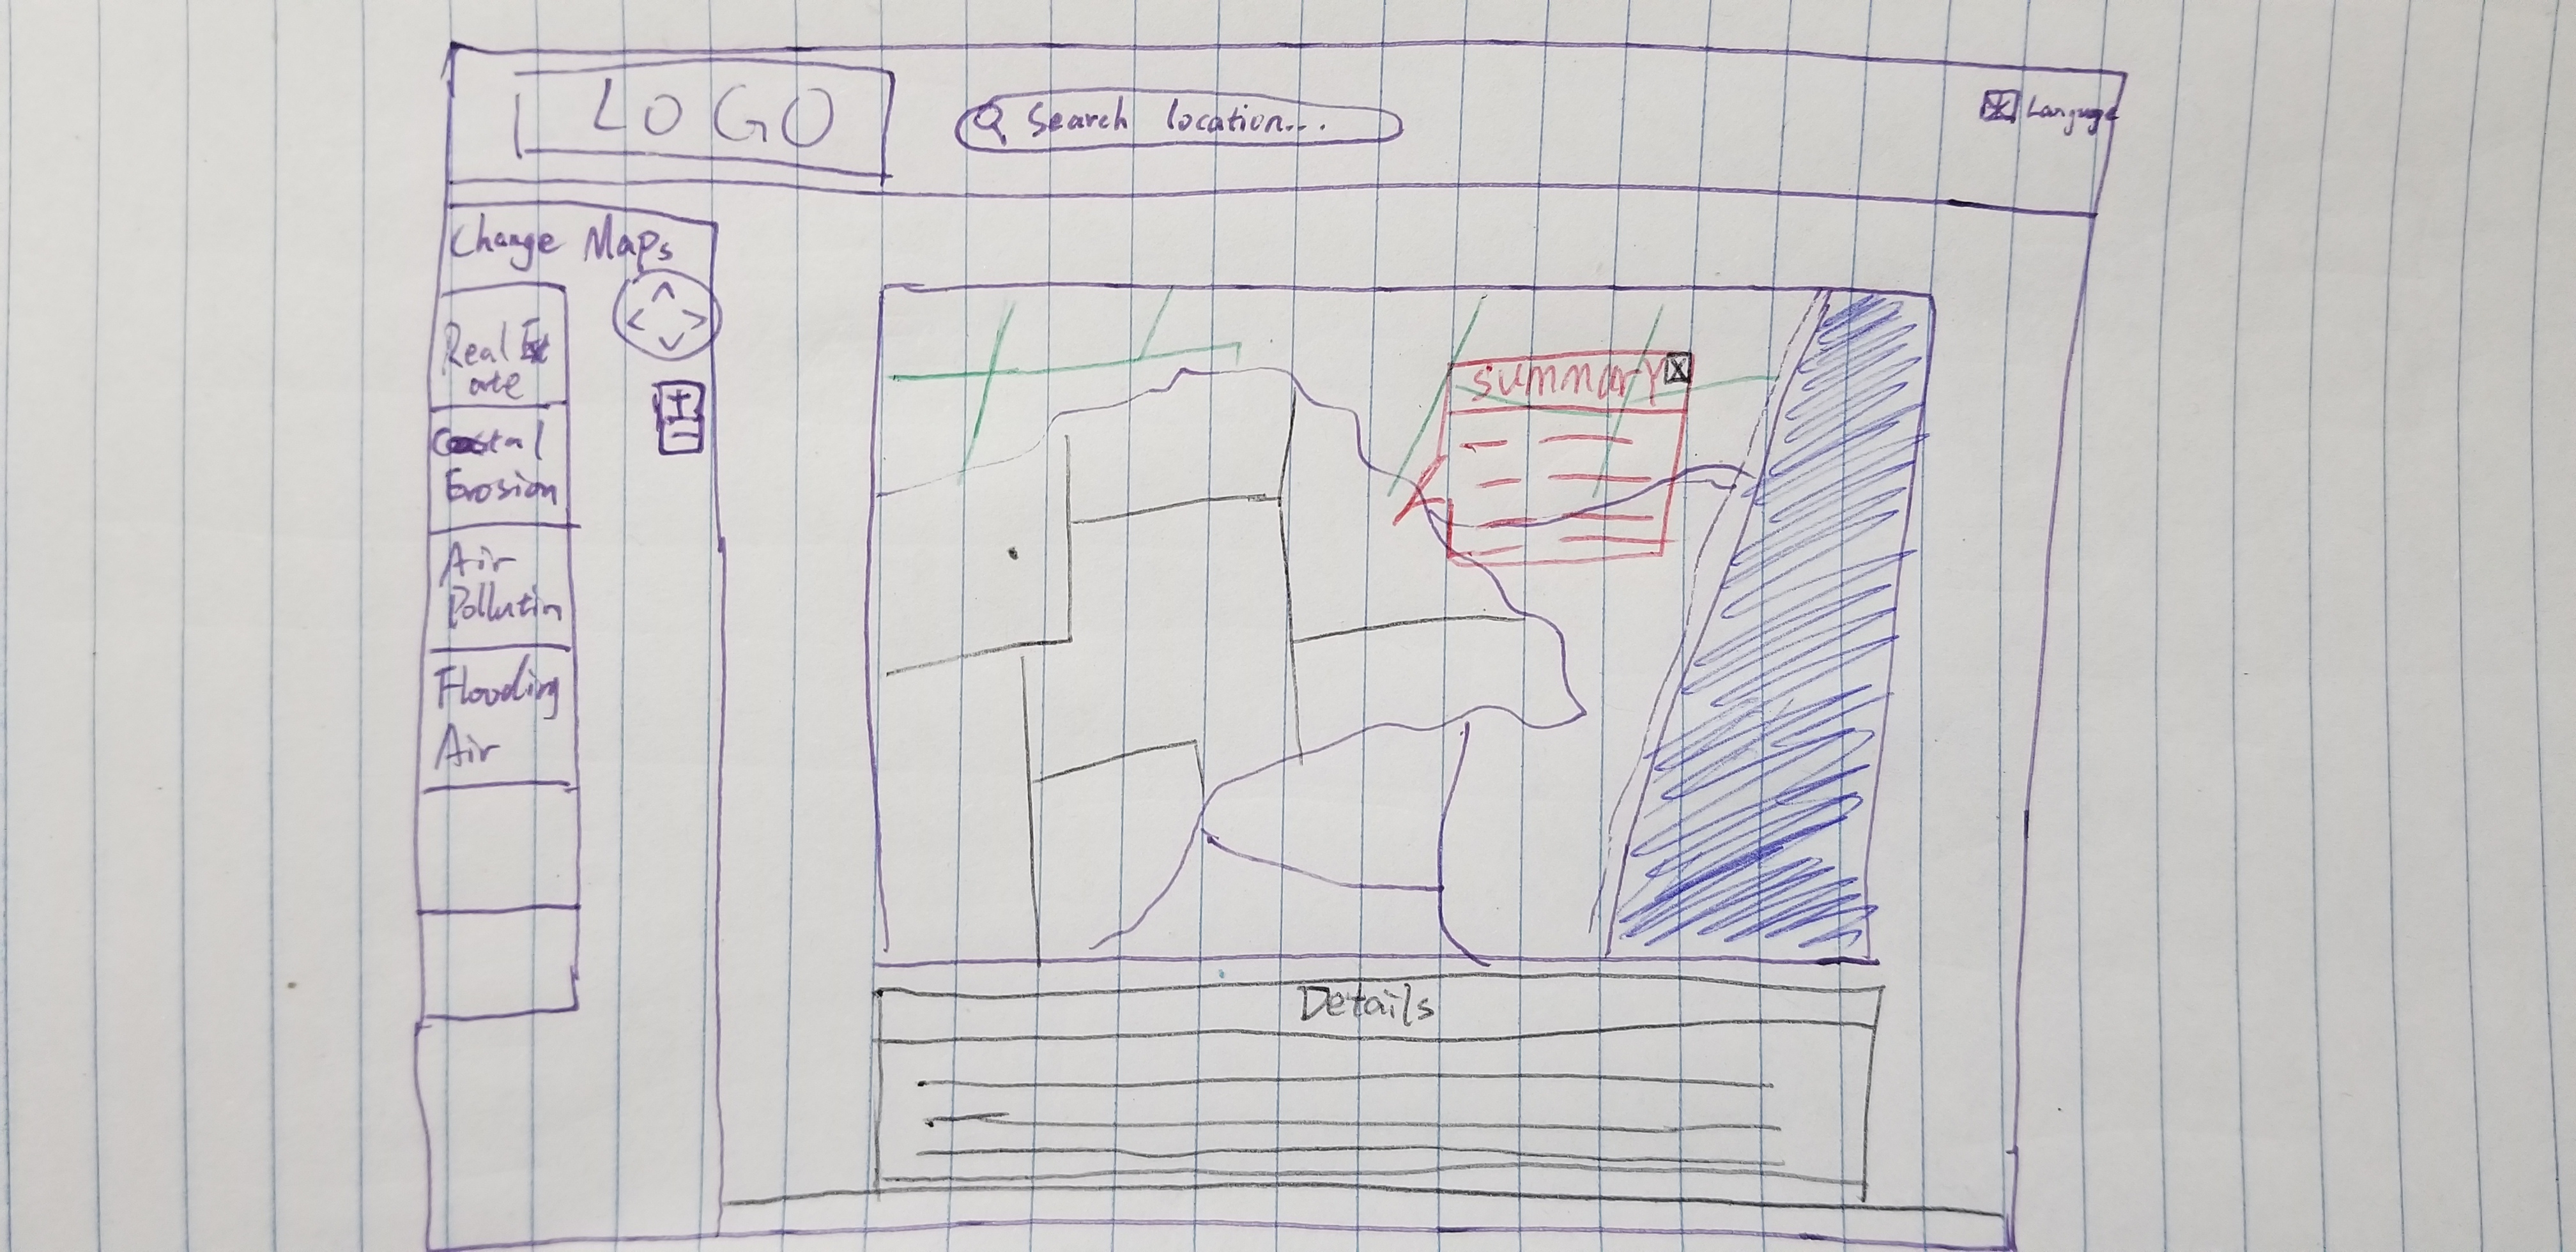 LOGO
Search location...
Language
Change Maps
Real Est
ate
Coastal
Erosion
Air
Pollutin
Flooding
Air
summary
X
Details